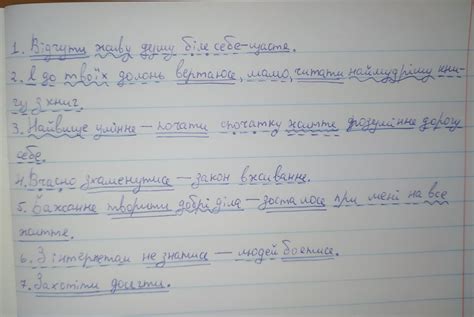 1. Відчути живу душу біле себе-щастя.
2. Я до твоїх долонь вертаюся, мамо, читати наймудрішу кни-
гу з книг.
3. Найвище уміння — почати спочатку життя розуміння дорогу
себе.
4. Вчасно схаменутися — закон виживання.
5. Бажання творити добрі діла — зосталося при мені на все
життя.
6. З інтернетом не знатися — людей боятися.
7. Захотіти досягти.